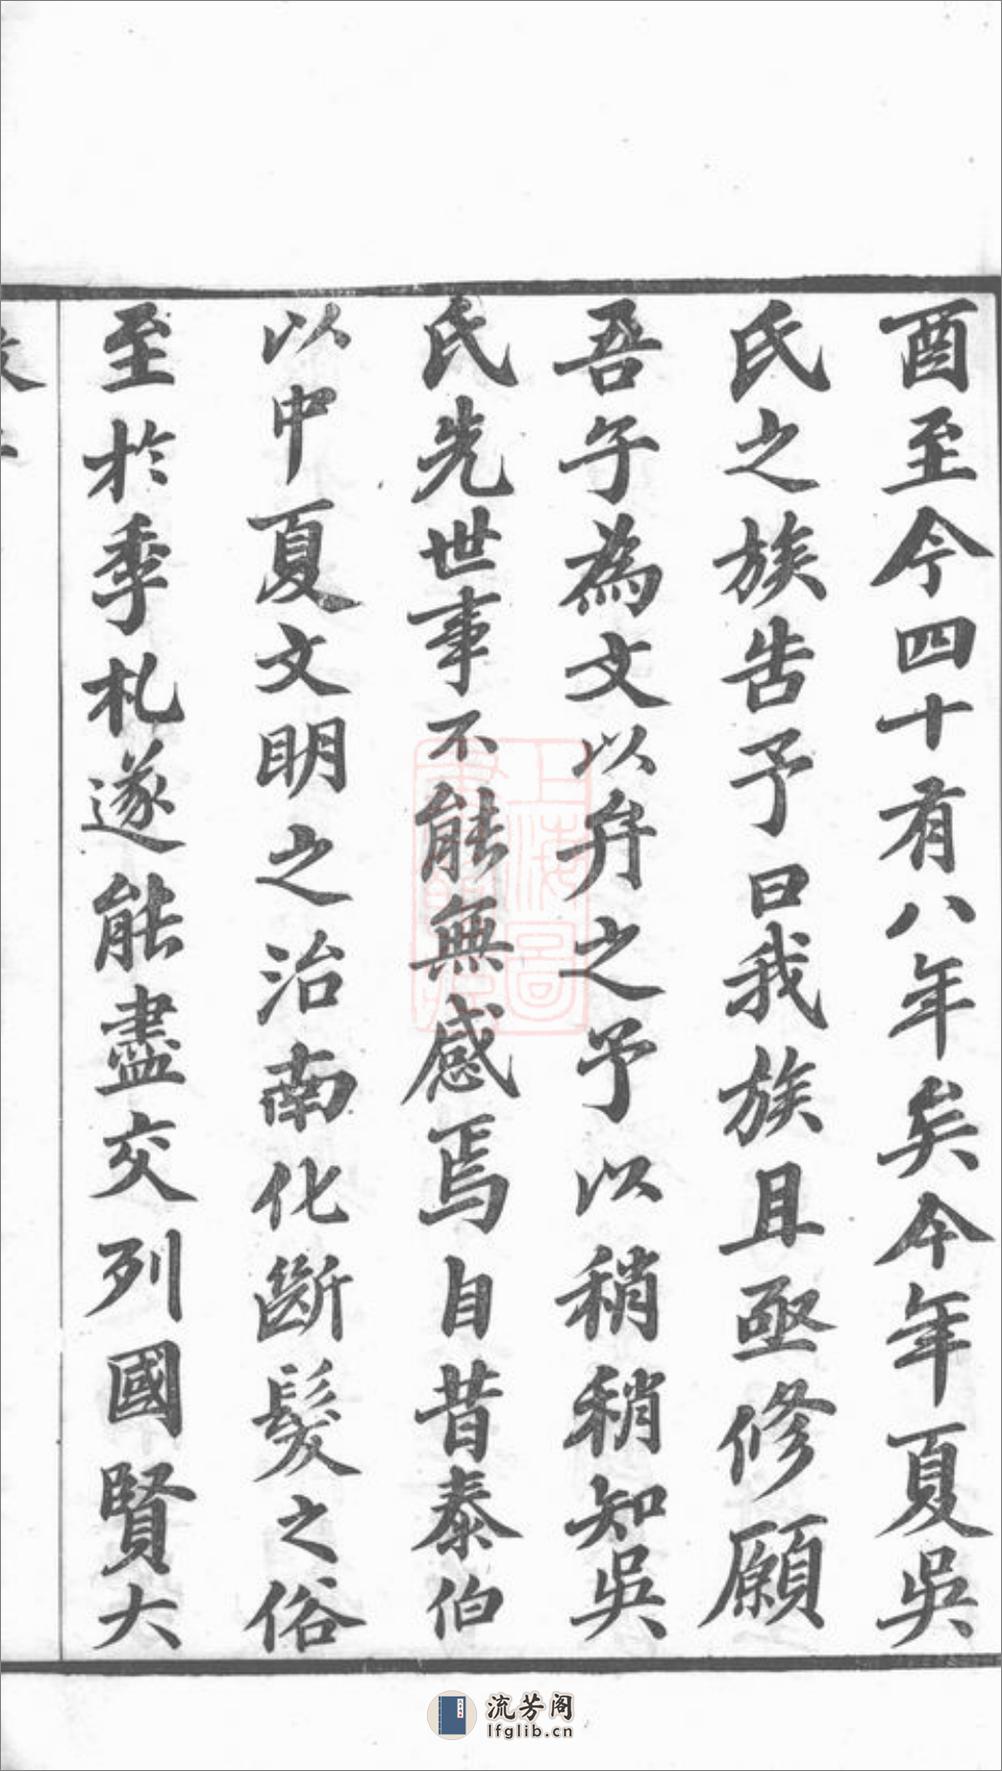 酉至今四十有八年矣今年夏吳
氏之族告予曰我族且亟修願
吾子為文以弁之予以稍稍知吳
氏先世事不能無感焉自昔泰伯
以中夏文明之治南化斷髮之俗
至於季札遂能盡交列國賢大
上海圖
流芳阁
lfglib.cn